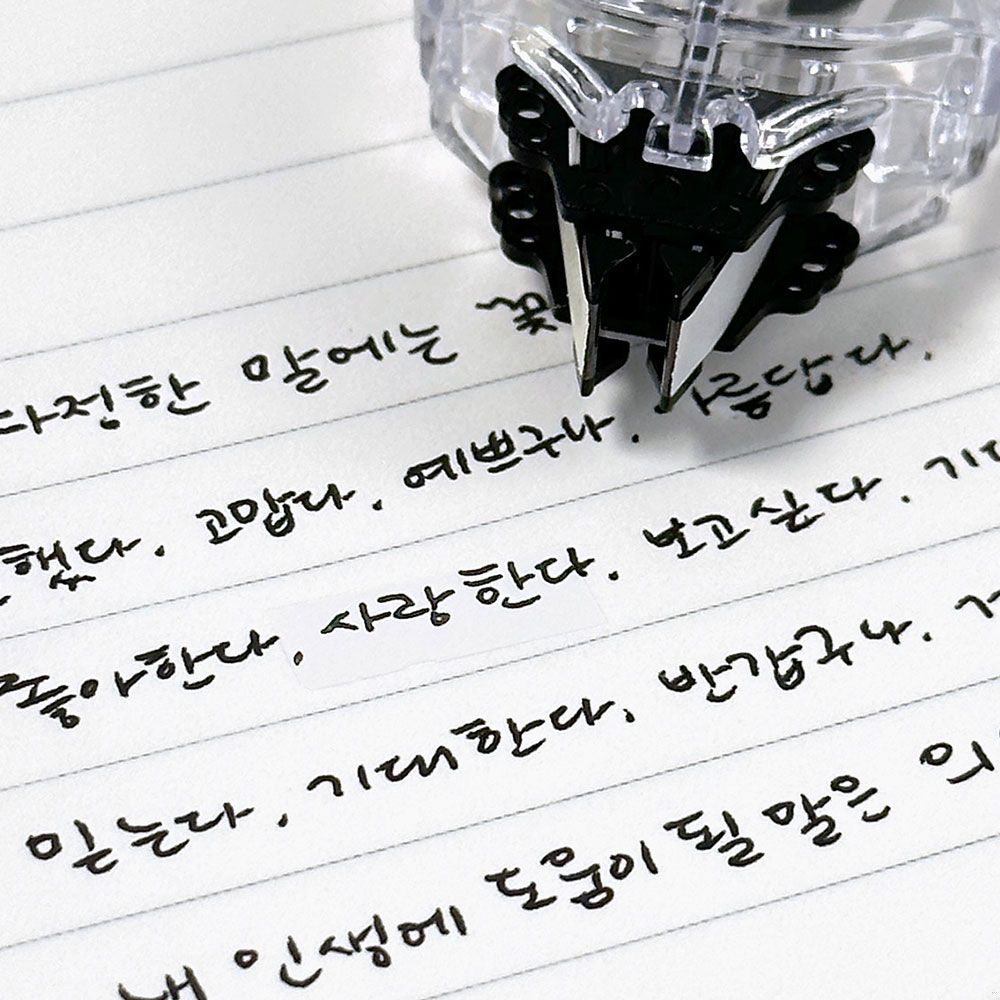 다정한 말에는 꽃
했다. 고맙다. 예쁘구나. 아름답다.
좋아한다. 사랑한다. 보고싶다. 기다
믿는다. 기대한다. 반갑구나.
내 인생에 도움이 될 말은